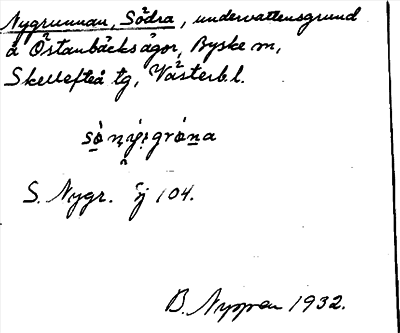 Nygrunnan, Södra, undervattensgrund
å Östanbäcks ägor, Byske sn,
Skellefteå tg, Västerb. l.
S. Nygr. ej 104.
B. Nyman 1932.